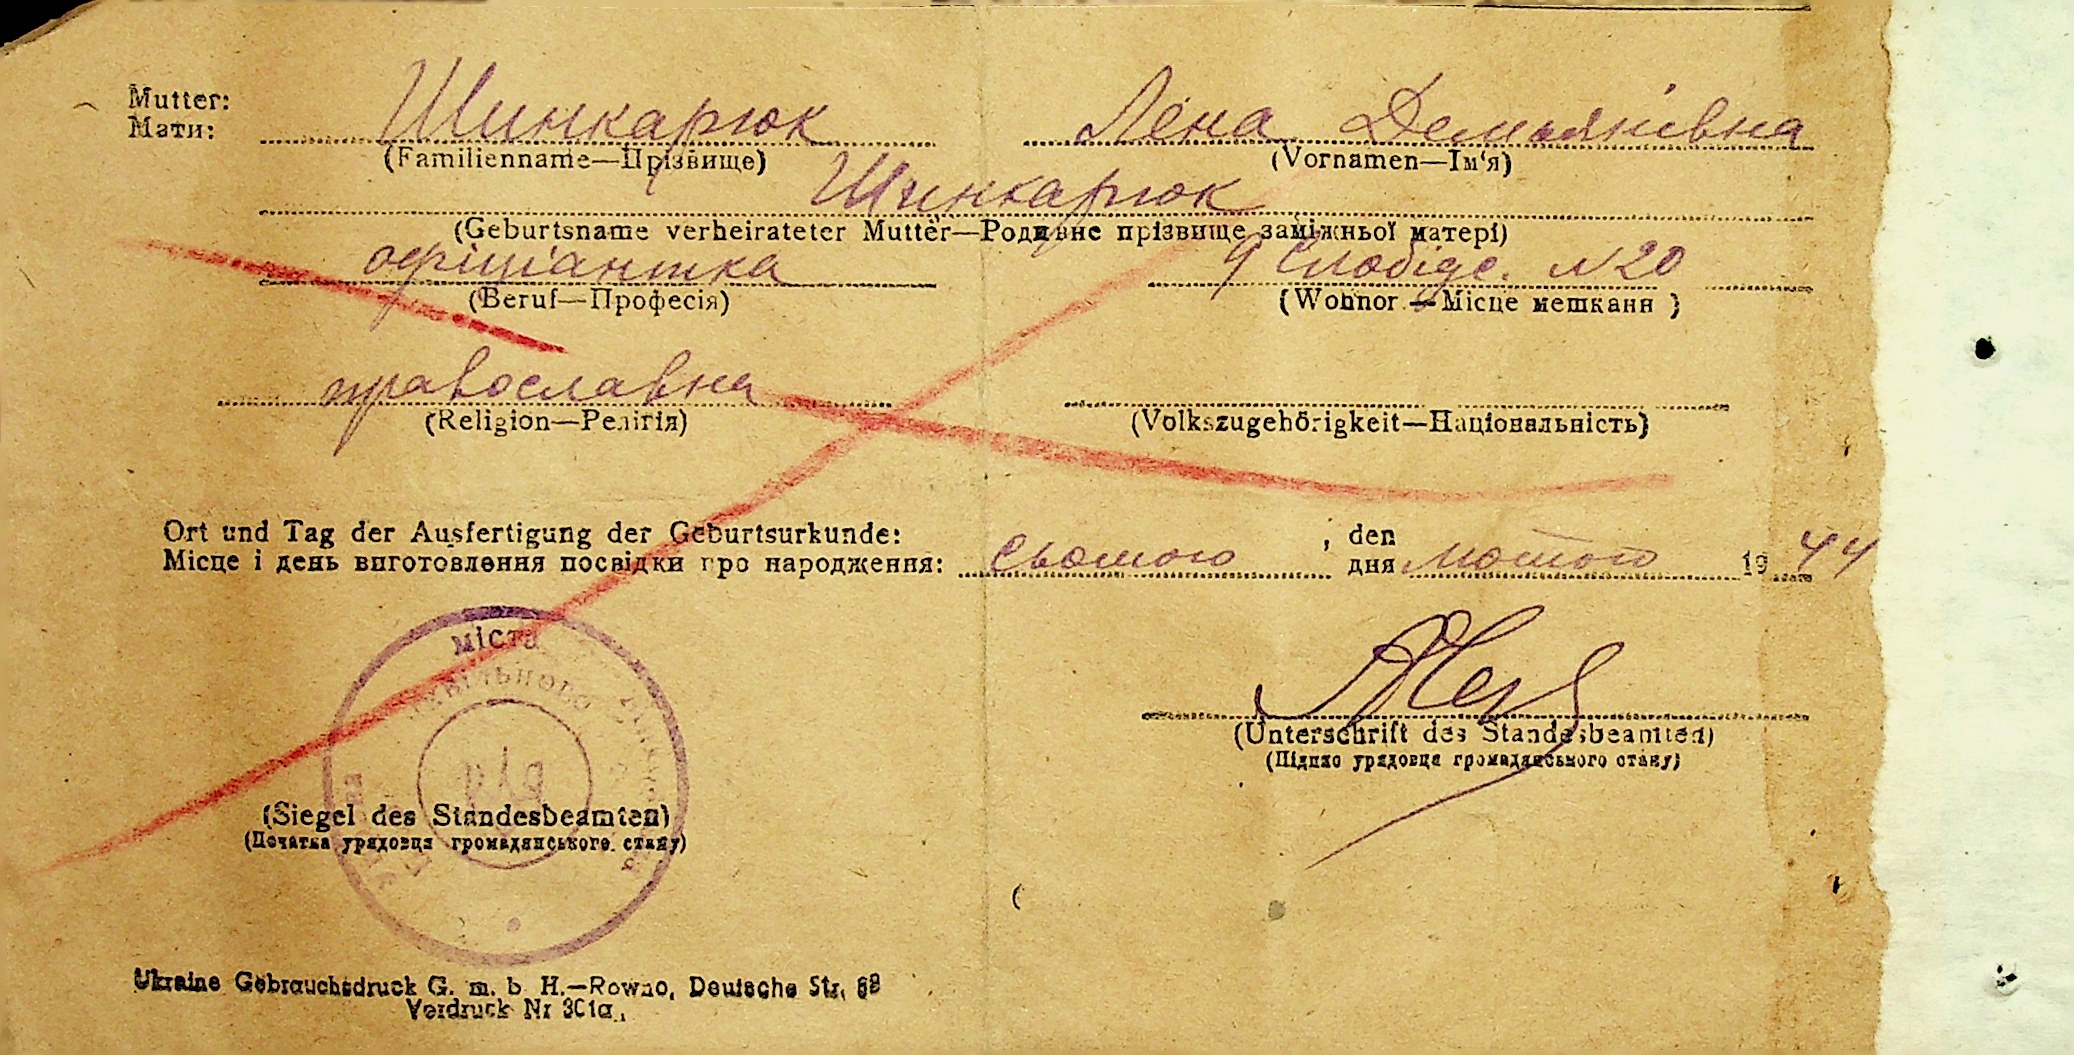 Mutter:
Мати:
Шинкарюк Лєна Демьянівна
(Familienname—Прізвище) (Vornamen—Ім'я)
Шинкарюк
(Geburtsname verheirateter Mutter—Родивне прізвище заміжньої матері)
офіціантка Слобідс. N 20
(Beruf—Професія) (Wohnor —Місце мешкани )
православна
(Religion—Релігія) (Volkszugehörigkeit—Національність)
Ort und Tag der Ausfertigung der Geburtsurkunde: , den
Місце і день виготовлення посвідки про народження: сьомого дня лютого 19 44
міста
(Unterschrift des Standesbeamten)
(Підпис урядовця громадянського стану)
(Siegel des Standesbeamten)
(Печатка урядовця громадянського стану)
Ukraine Gebrauchsdruck G. m. b H.—Rowno, Deutsche Str. 68
Vordruck Nr 301a.